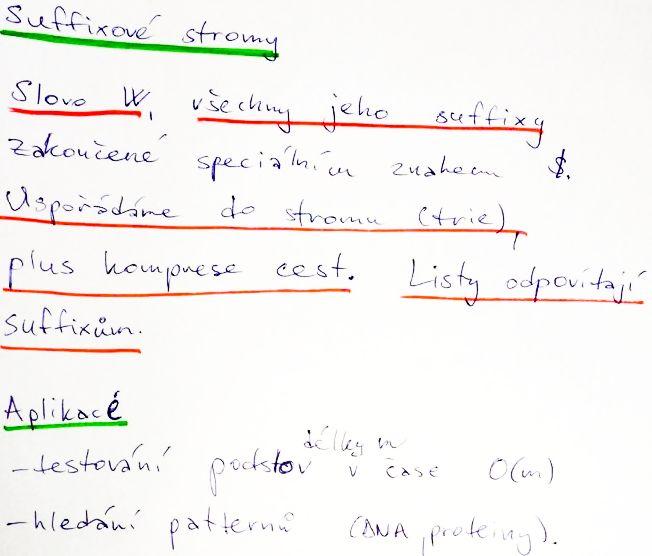 Suffixové stromy
Slovo W, všechny jeho suffixy
zakončené speciálním znakem $.
Uspořádáme do stromu (trie),
plus komprese cest. Listy odpovítají
suffixům.
Aplikacé
délky m
-testování podstov v čase O(m)
-hledání patternů (DNA, proteiny).